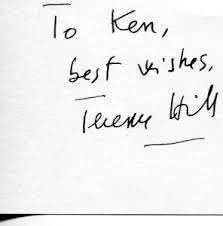 To Ken,
best wishes,
Terence Hill